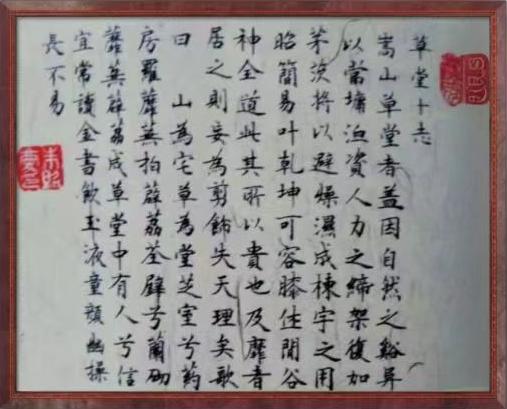 草堂十志
嵩山草堂者盖因自然之谿阜
以當墉洫資人力之締架復加
茅茨將以避燥濕成棟宇之用
昭簡易叶乾坤可容膝住閒谷
神全道此其所以貴也及靡者
居之則妄為剪飾失天理矣歌
曰 山為宅草為堂芝室兮药
房羅蘼蕪拍薜荔荃壁兮蘭砌
蘼蕪薜荔成草堂中有人兮信
宜常讀金書飲玉液童顏幽操
長不易